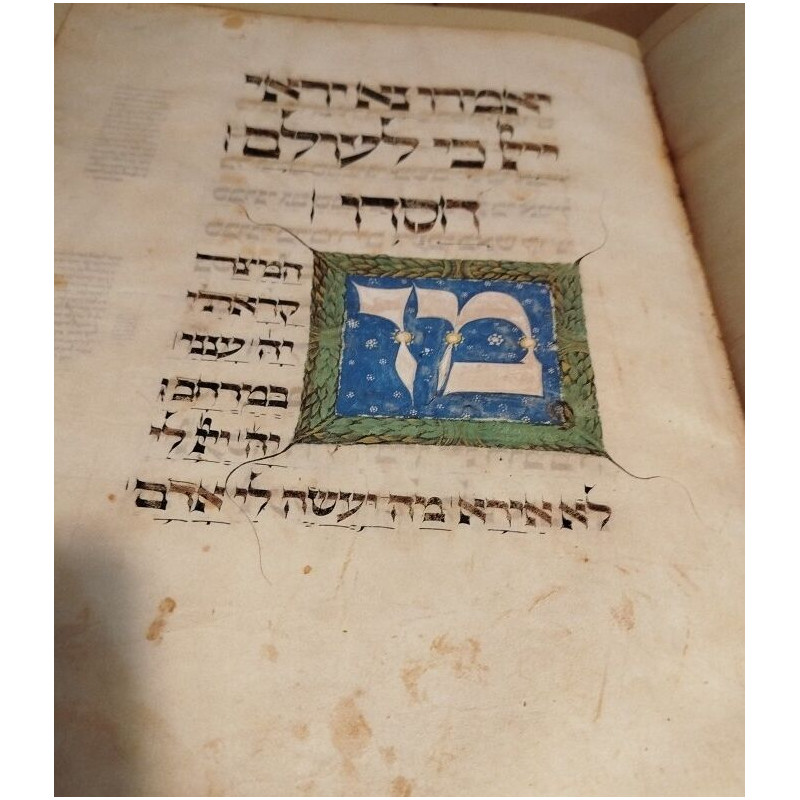 יאמרו נא יראי
ייי כי לעולם
חסדו
מן
המיצר
קראתי
יה ענני
במרחב
יה ייי לי
לא אירא מה יעשה לי אדם